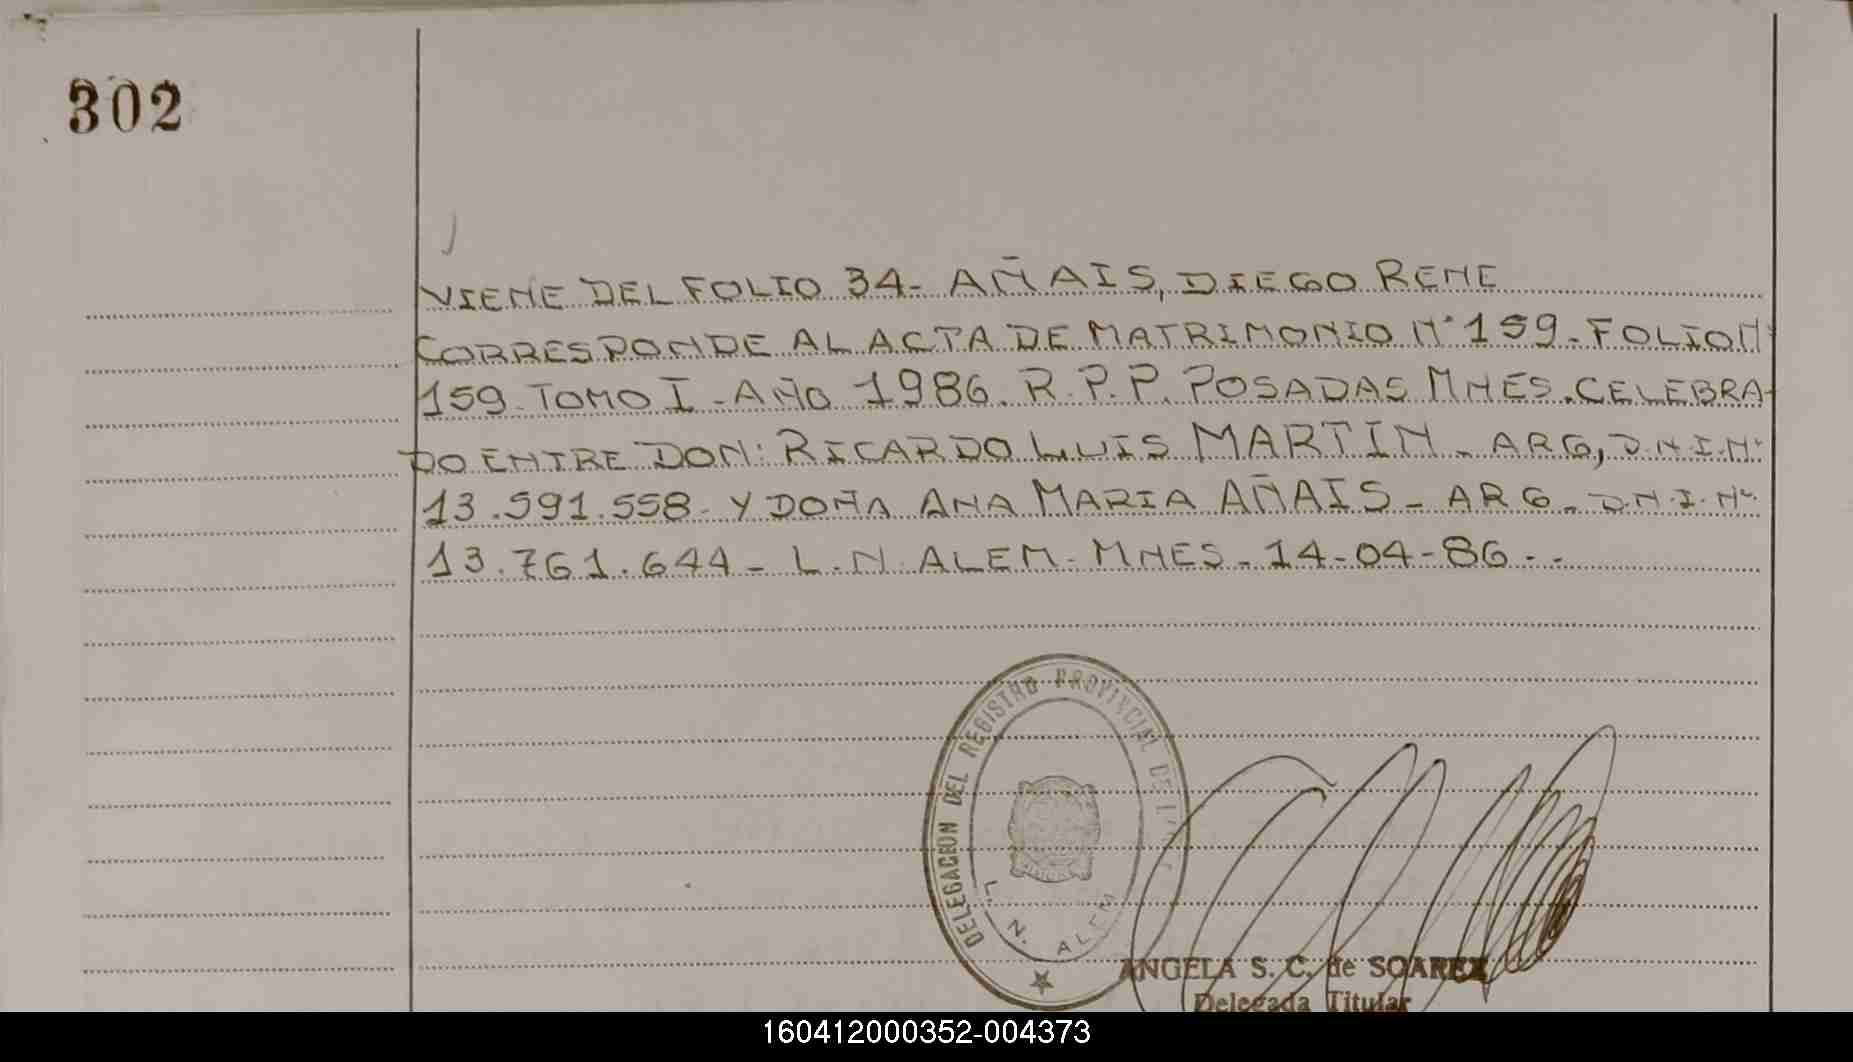 302
VIENE DEL FOLIO 34- AÑAIS, DIEGO RENE
CORRESPONDE AL ACTA DE MATRIMONIO N° 159- FOLION°
159- TOMO I - AÑO 1986. R.P.P. POSADAS MNES. CELEBRA-
DO ENTRE DON: RICARDO LUIS MARTIN - ARG, D.N.I.N°
13.591.558- Y DOÑA ANA MARIA AÑAIS - ARG - D.N.I. N°
13.761.644 - L.N. ALEM- MNES - 14-04-86 - -
DELEGACION DEL REGISTRO PROVINCIAL DE LAS
L. N. ALEM
ANGELA S. C. de SOAREZ
Delegada Titular
160412000352-004373